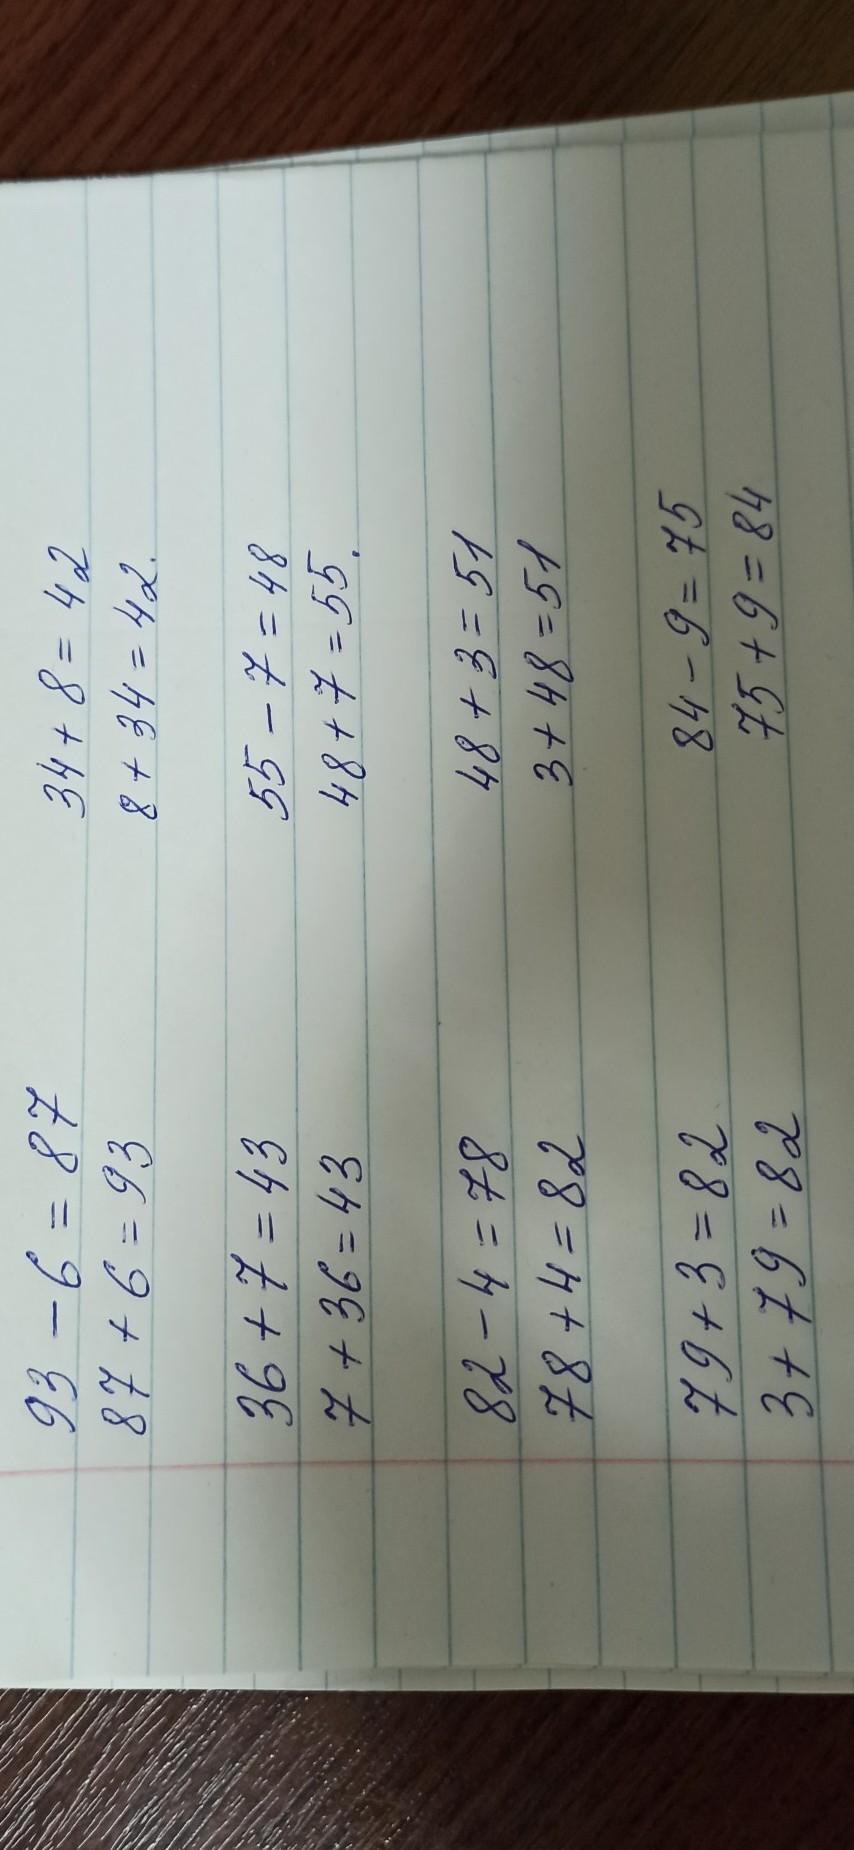 93 - 6 = 87 34 + 8 = 42
87 + 6 = 93 8 + 34 = 42.
36 + 7 = 43 55 - 7 = 48
7 + 36 = 43 48 + 7 = 55.
82 - 4 = 78 48 + 3 = 51
78 + 4 = 82 3 + 48 = 51
79 + 3 = 82 84 - 9 = 75
3 + 79 = 82 75 + 9 = 84